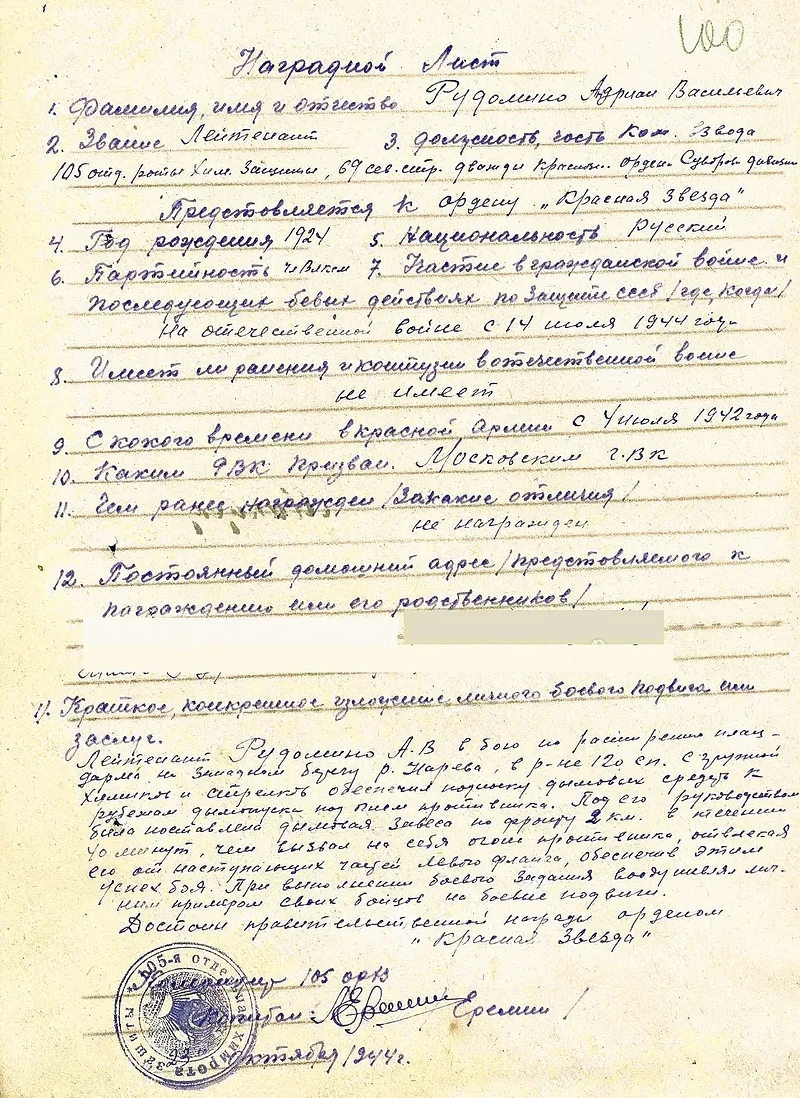 100
Наградной Лист
1. Фамилия, имя и отчество Рудомино Адриан Васильевич
2. Звание Лейтенант 3. должность, часть Ком. Взвода
105 отд. роты Хим. Защиты, 69 сев. стр. дважды Красн. орден Суворов. дивизии
Представляется к ордену „Красная Звезда"
4. Год рождения 1924 5. Национальность Русский
6. Партийность чл ВЛКСМ 7. Участие в гражданской войне и
последующих боевых действиях по защите СССР /где, когда/
На отечественной войне с 14 июля 1944 года
8. Имеет ли ранения и контузии в отечественной войне
не имеет
9. С какого времени в красной армии с 4 июля 1942 года
10. Каким РВК призван. Московским Г.В.К
11. Чем ранее награжден /За какие отличия/
не награжден
12. Постоянный домашний адрес /представляемого к
награждению или его родственников/
1). Краткое, конкретное изложение личного боевого подвига или
заслуг.
Лейтенант Рудомино А.В в бою по расширению плац-
дарма на Западном берегу р. Нарева, в р-не 120 сп. с группой
Химиков и стрелков обеспечил подноску дымовых средств к
рубежам дымопуска под огнем противника. Под его руководством
была поставлена дымовая Завеса по фронту 2 км. в течении
40 минут, чем вызвал на себя огонь противника, отвлекая
его от наступающих частей левого фланга, обеспечив этим
успех боя. При выполнении боевого Задания воодушевлял лич-
ным примером своих бойцов на боевые подвиги.
Достоин правительственной награды орденом
„Красная Звезда"
Командир 105 орхз
Капитан Еремин /
23 октября 1944 г.
105-я отдельная химрота защиты